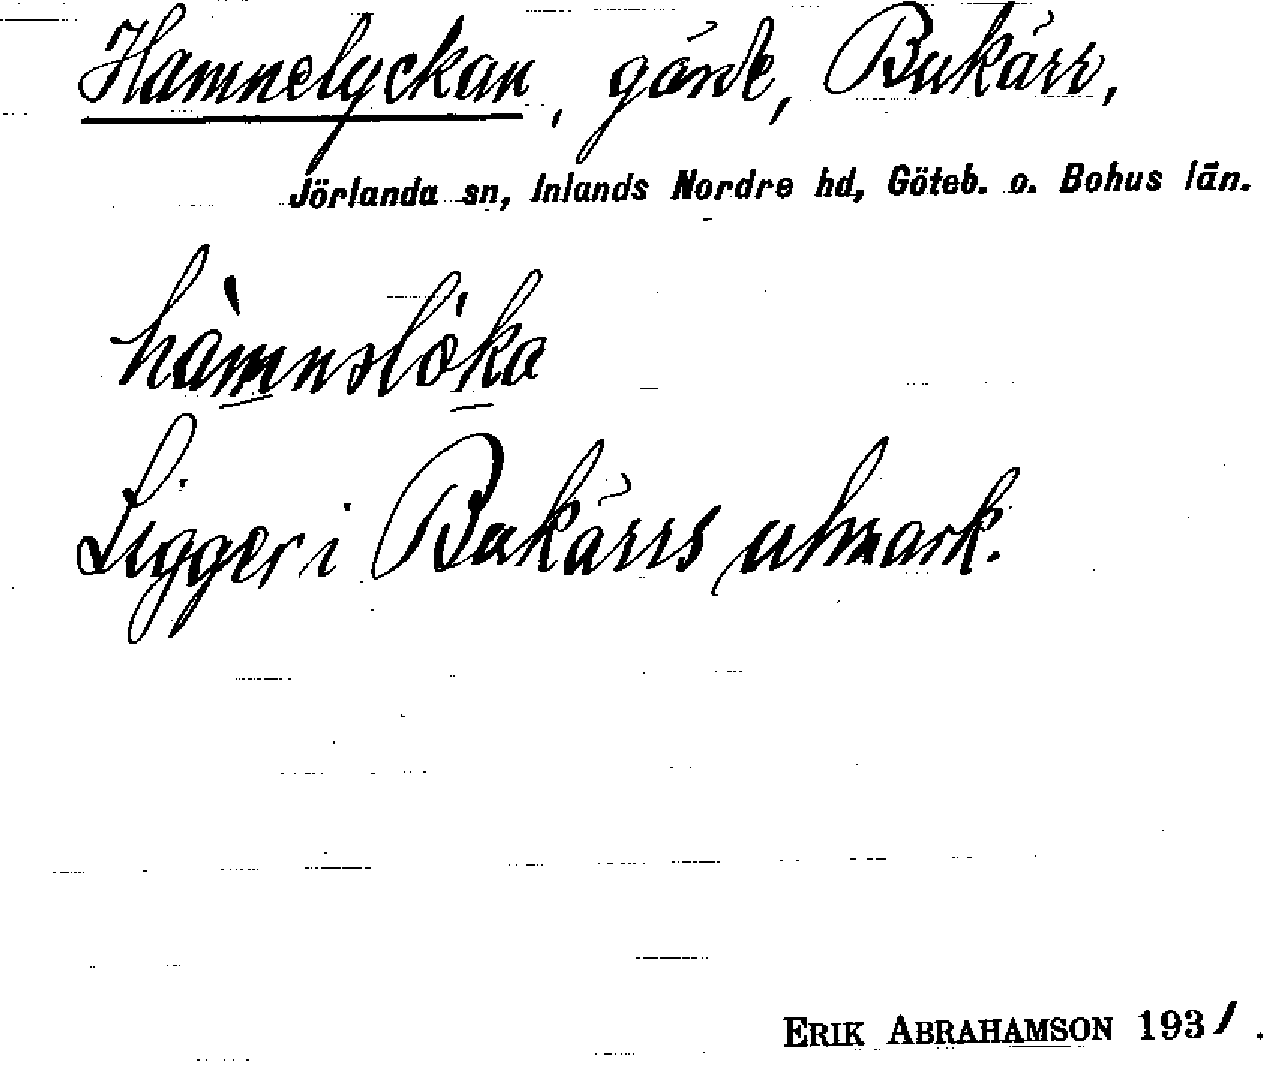 Hamnelyckan, gärde, Bukärr,
Jörlanda sn, Inlands Nordre hd, Göteb. o. Bohus län.
hàmnslö̀ka
Ligger i Bukärrs utmark.
ERIK ABRAHAMSON 1931.